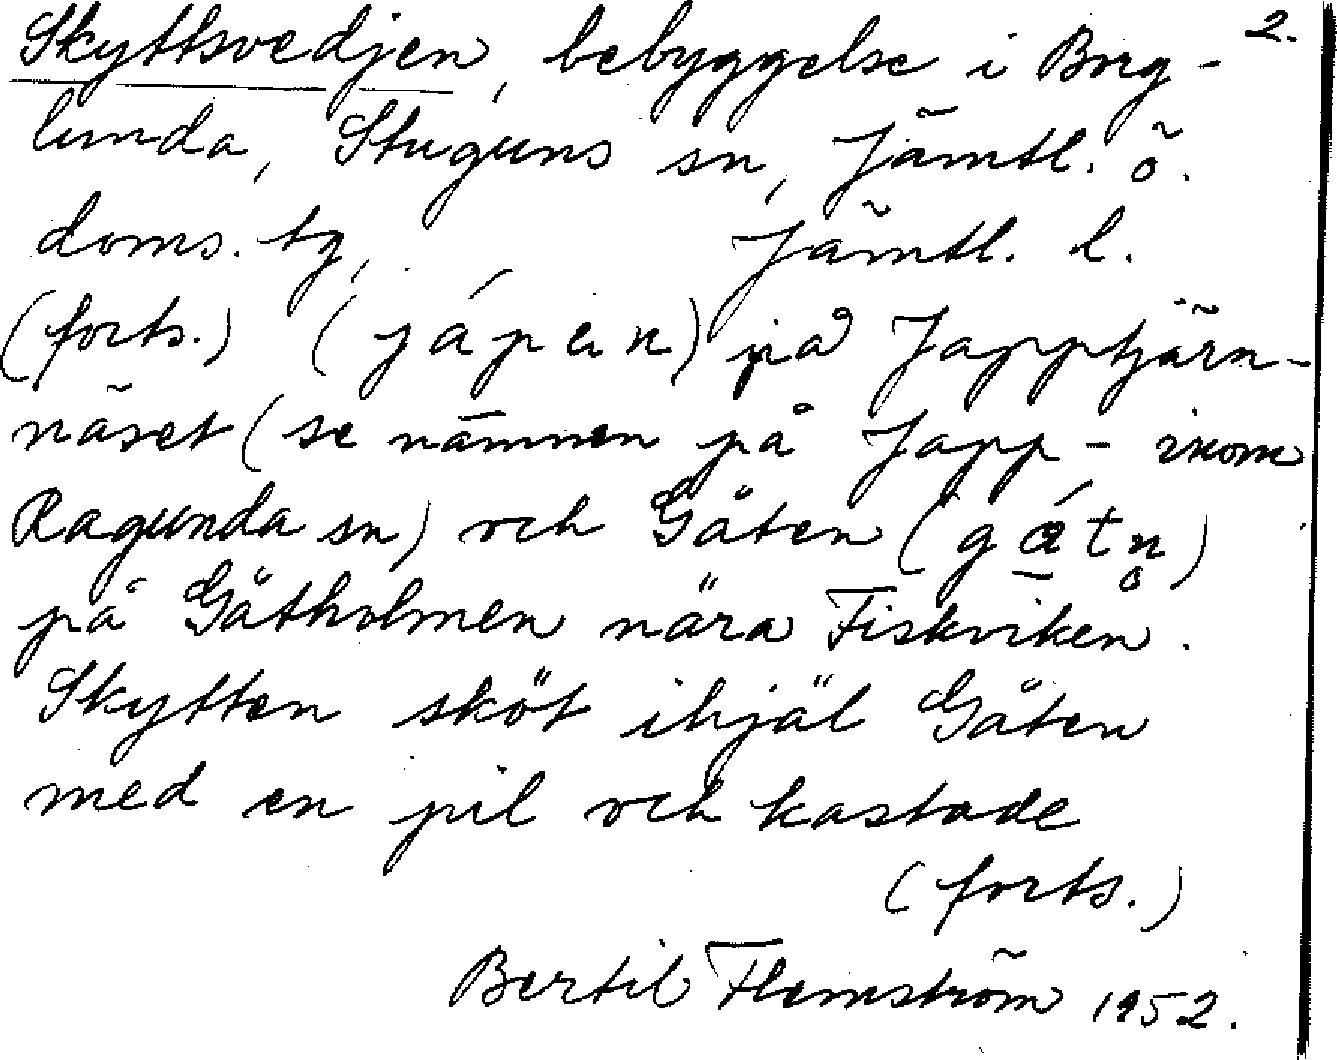 Skyttsvedjen, bebyggelse i Borg- 2.
lunda, Stuguns sn, Jämtl. ö.
doms. tg, Jämtl. l.
(forts.) (jápen) på Japptjärn-
näset (se nämnen på Japp- inom
Ragunda sn) och Gåten (gátn̥)
på Gåtholmen nära Fiskviken.
Skytten sköt ihjäl Gåten
med en pil och kastade
(forts.)
Bertil Flemström 1952.